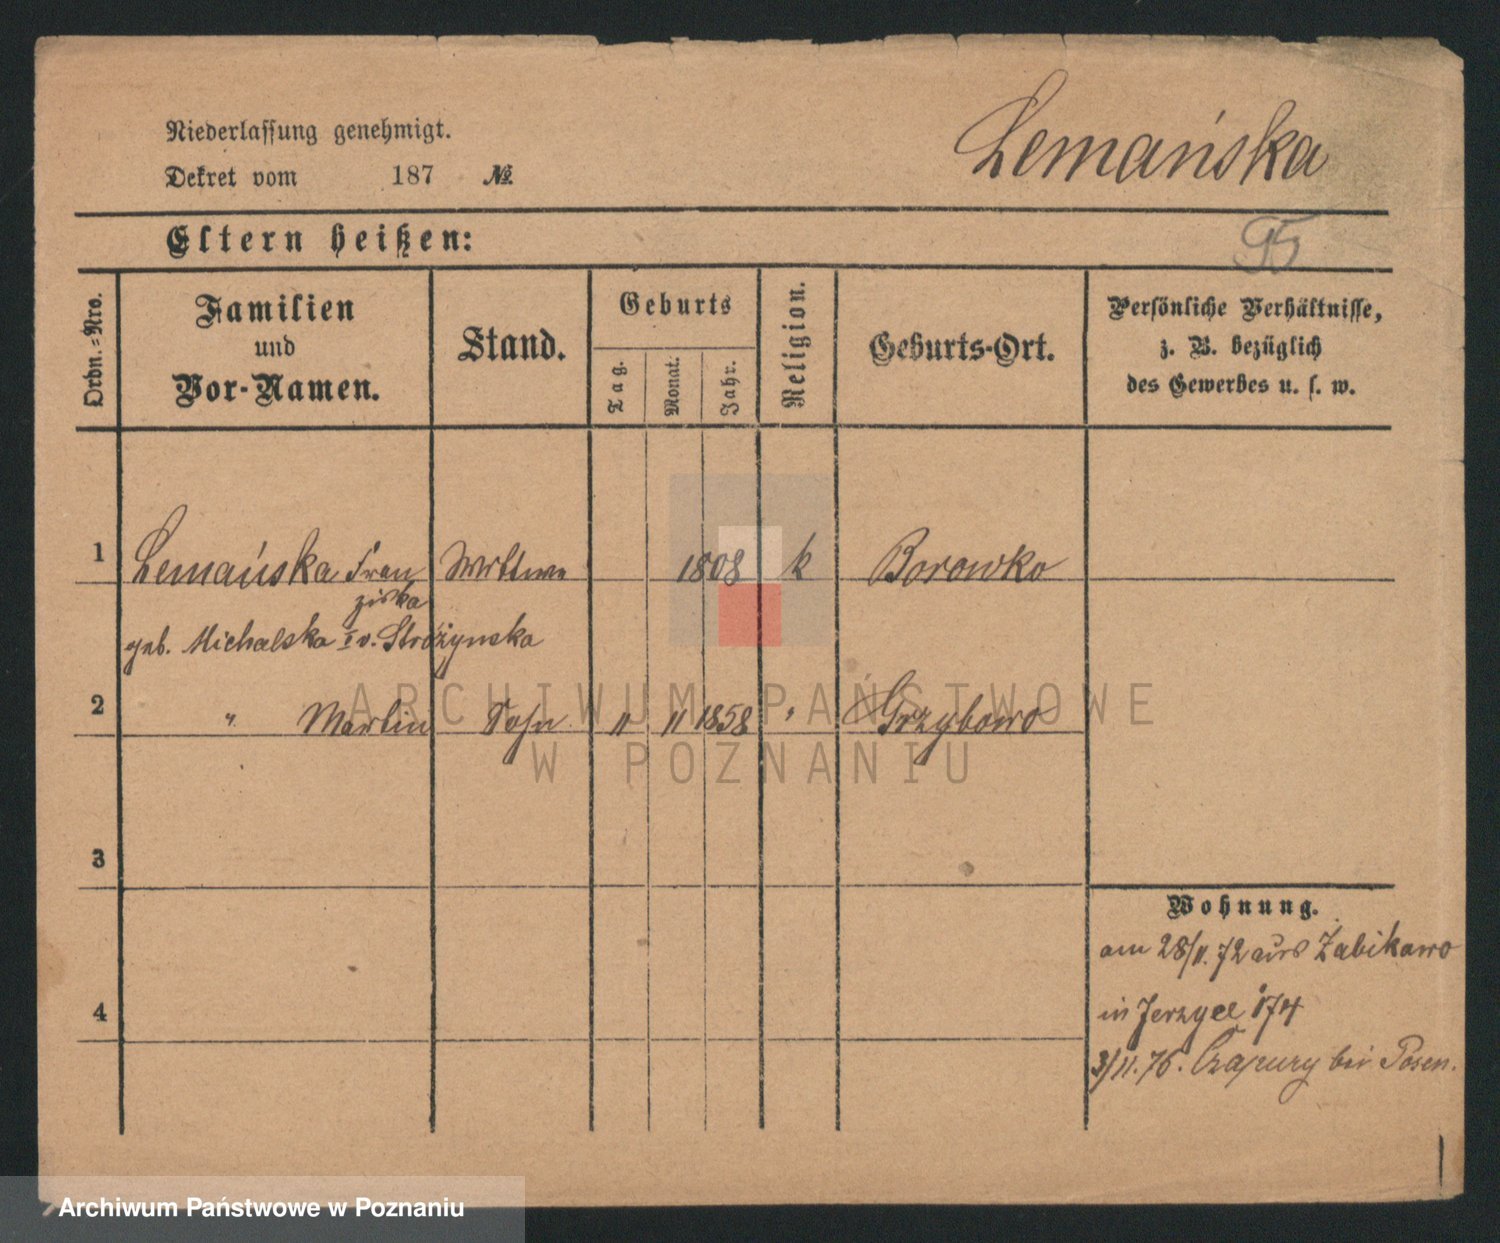 Niederlassung genehmigt.
Lemańska
Dekret vom 187 №
Eltern heißen:
95
Ordn.-Nro.
Familien
und
Vor-Namen.
Stand.
Geburts
Tag.
Monat.
Jahr.
Religion.
Geburts-Ort.
Persönliche Verhältnisse,
z. B. bezüglich
des Gewerbes u. s. w.
1 Lemańska Fran Wittwe 1808 k Borowko
ziska
geb. Michalska I v. Strózynska
2 " Martin Sohn 11 11 1858 " Grzybowo
3
4
Wohnung.
am 28/11. 72 aus Zabikowo
in Jerzyce 174
3/11. 76. Czapury bei Posen.
ARCHIWUM PAŃSTWOWE
W POZNANIU
Archiwum Państwowe w Poznaniu